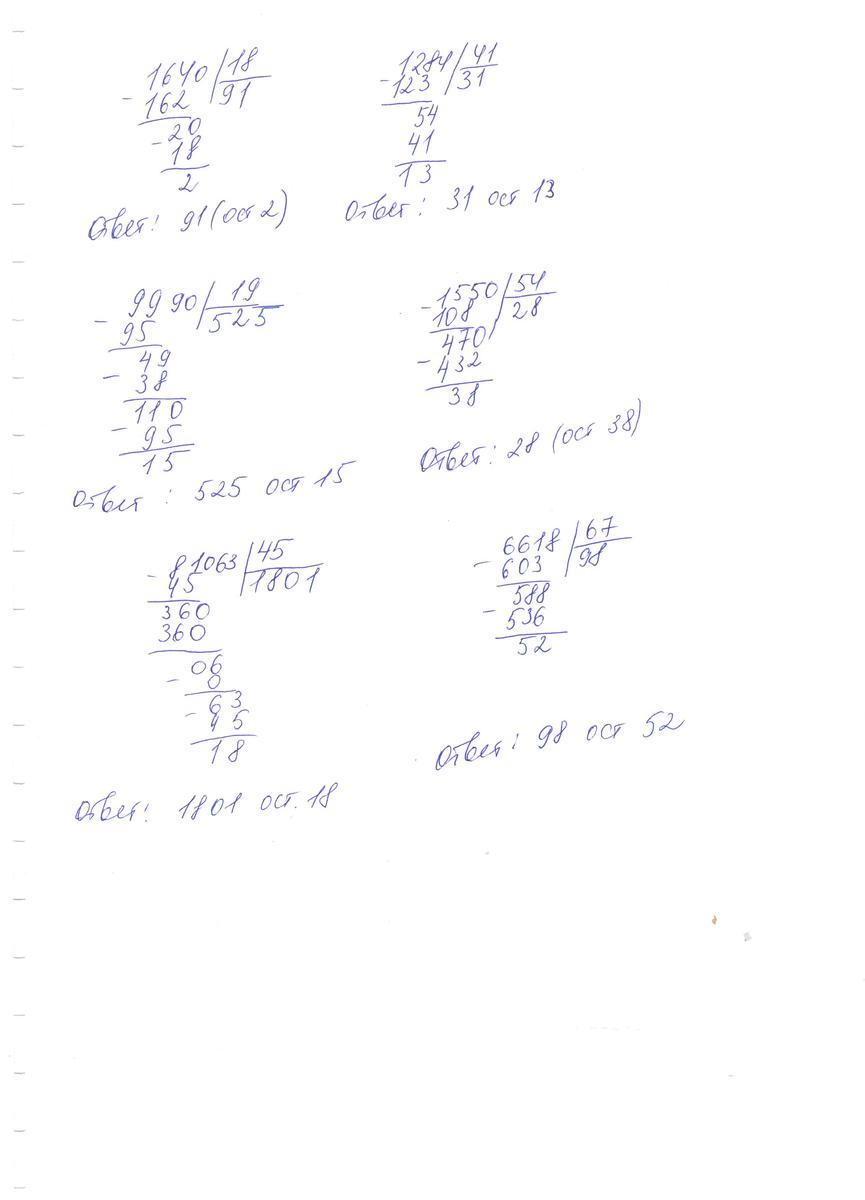 1640 18
- 162 91
- 20
18
2
Ответ: 91 (ост 2)
1284 41
- 123 31
54
41
13
Ответ: 31 ост 13
- 9990 19
95 525
49
- 38
110
- 95
15
Ответ: 525 ост 15
- 1550 54
108 28
470
- 432
38
Ответ: 28 (ост 38)
- 81063 45
45 1801
360
360
06
- 0
- 63
45
18
Ответ: 1801 ост. 18
- 6618 67
603 98
588
- 536
52
Ответ: 98 ост 52